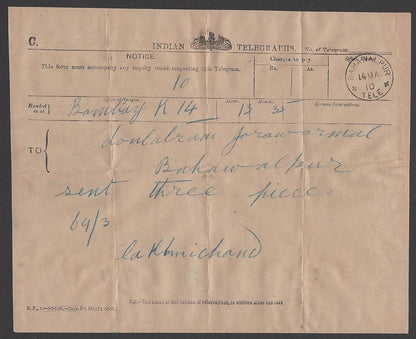 C.
INDIAN TELEGRAPHS.
No. of Telegram
NOTICE.
This form must accompany any inquiry made respecting this Telegram.
Charges to pay.
Rs. As.
10
BAHAWALPUR
14 MA.
10
TELE
Handed in at
Bombay K 14
Hour. Minute.
13 35
Service Instructions.
TO
doulatram Jorawarmal
Bahawalpur
sent three pieces
69/3
Lakhmichand
N.B.—The name of the Sender, if telegraphed, is written after the text